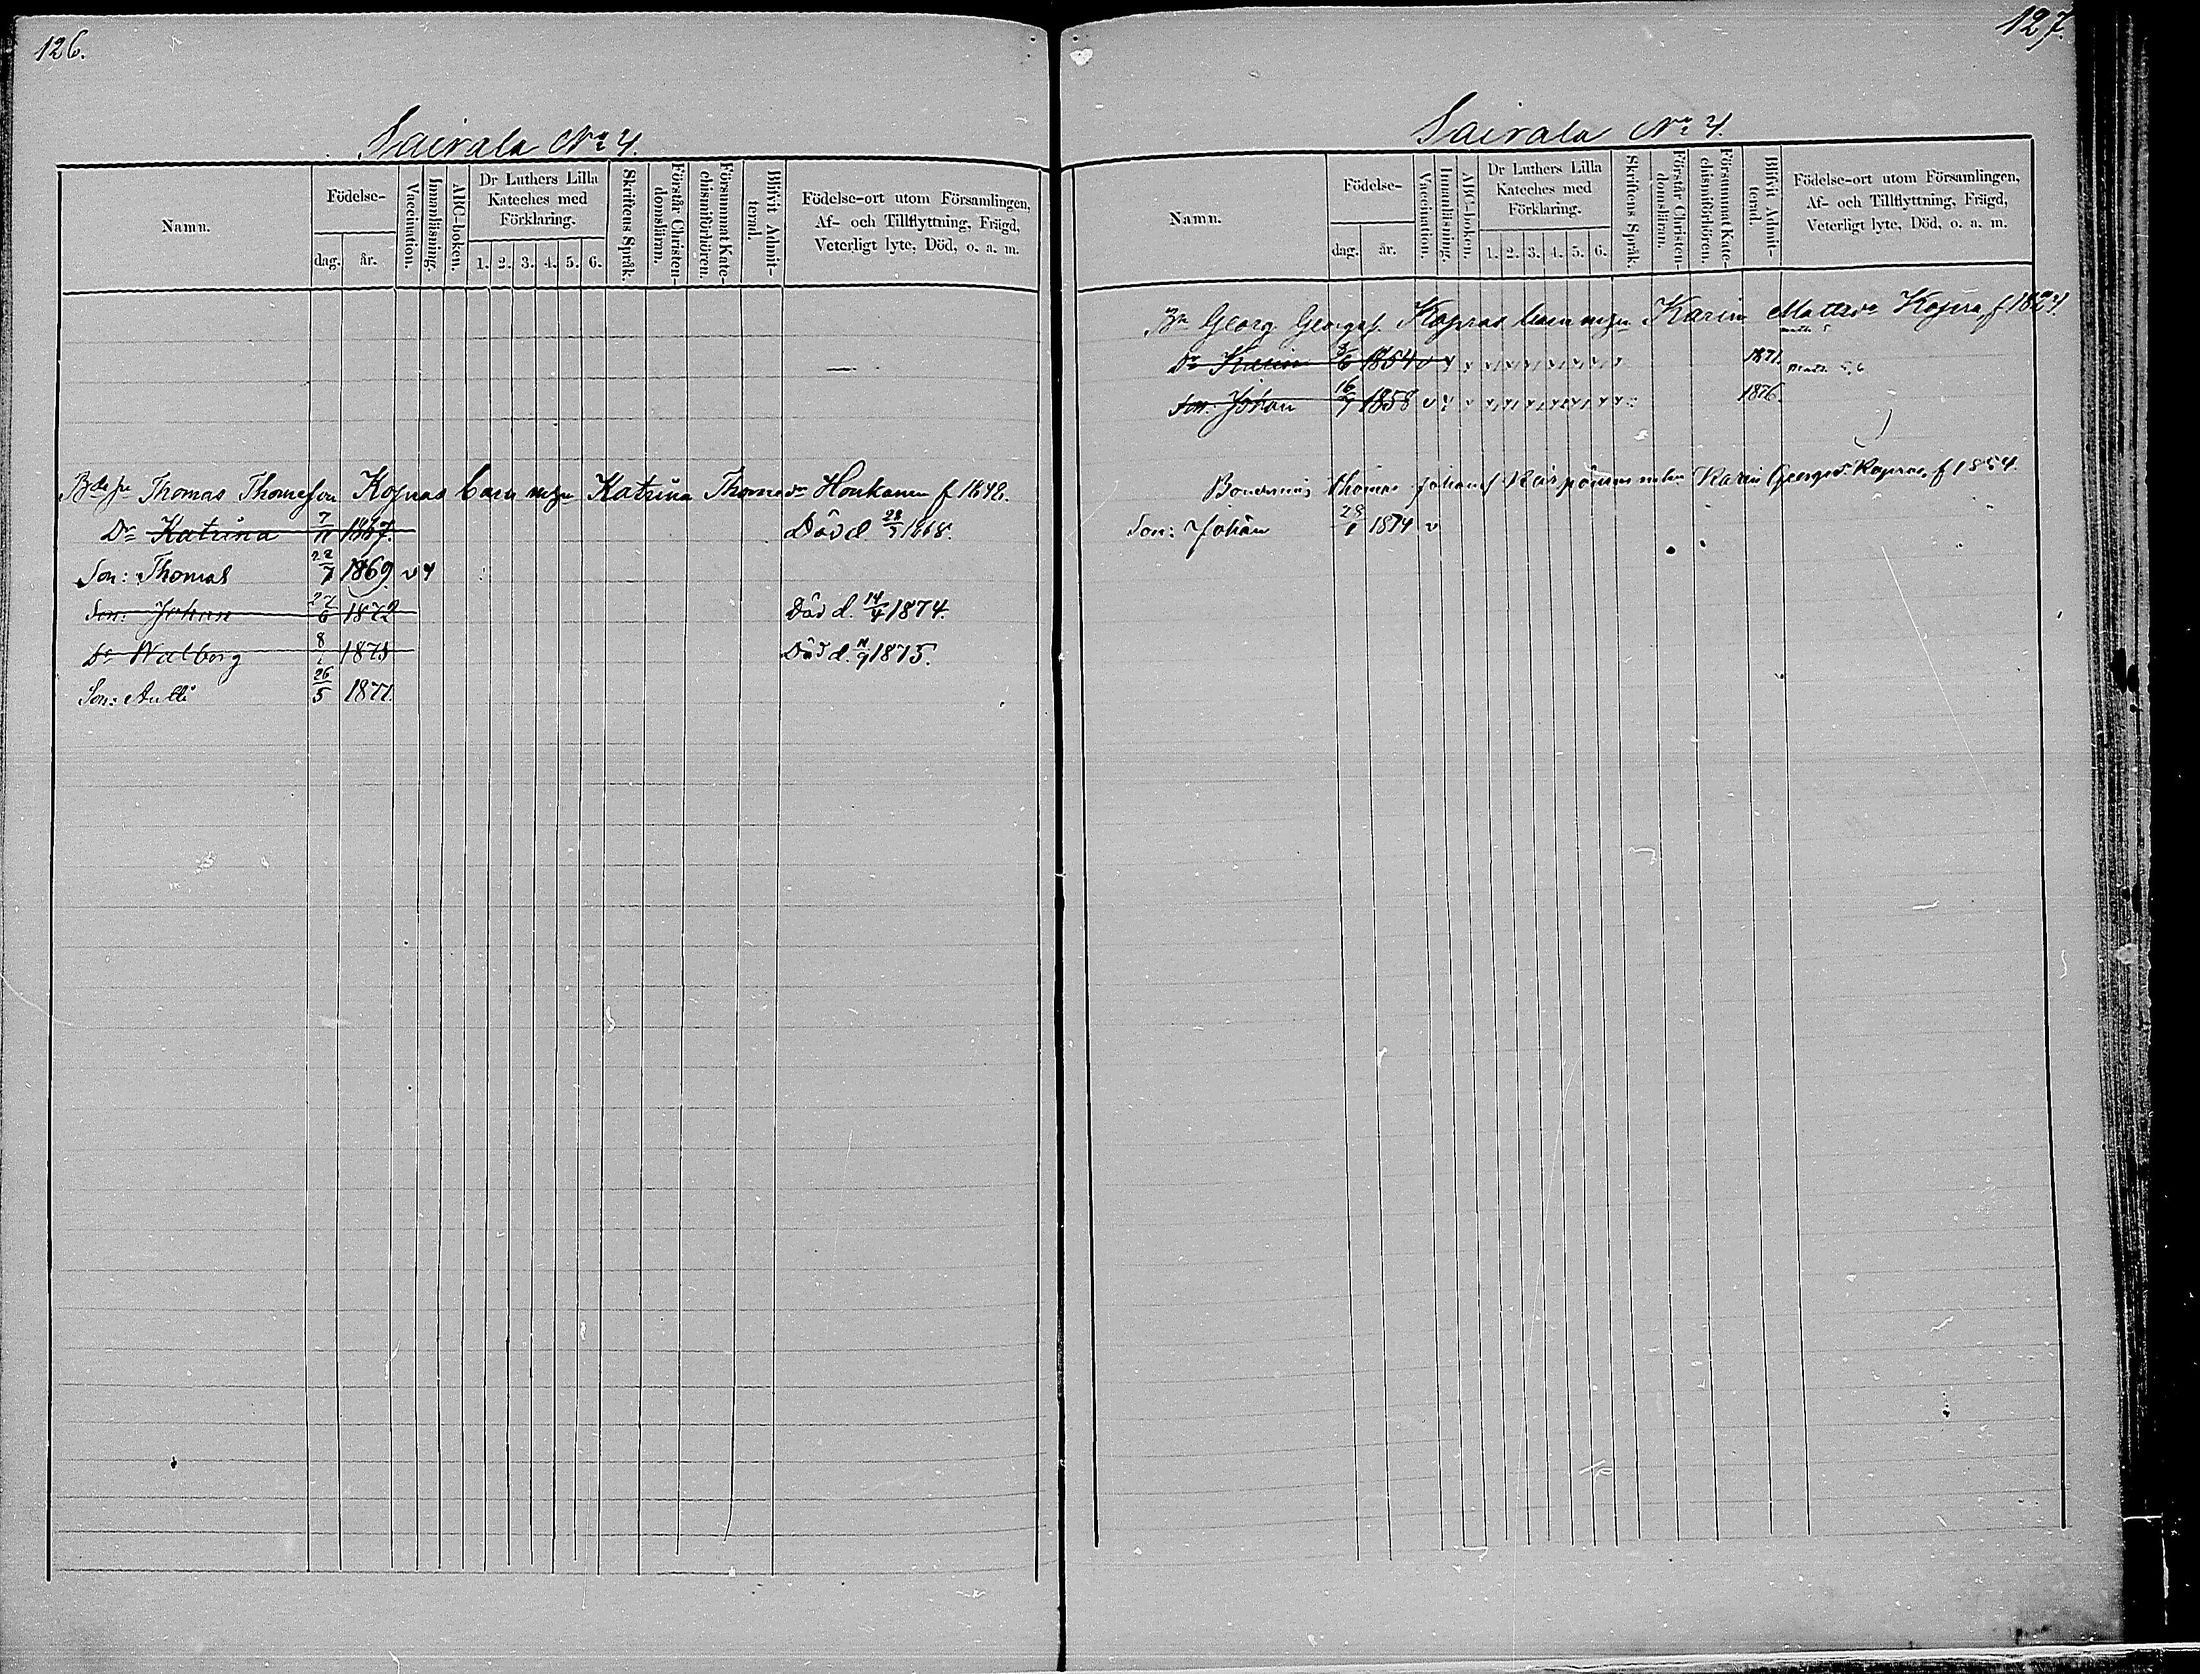 126.
Sairala No 4.
Namn.
Födelse-
dag.
år.
Vaccination.
Innanläsning.
ABC-boken.
Dr Luthers Lilla
Kateches med
Förklaring.
1. 2. 3. 4. 5. 6.
Skriftens Språk.
Förstår Christen-
domsläran.
Försummat Kate-
chismiförhören.
Blifvit Admit-
terad.
Födelse-ort utom Församlingen,
Af- och Tillflyttning, Frägd,
Veterligt lyte, Död, o. a. m.
Thomas Thomesson Kopras barn Katrina Thomedr Honkanen f 1848.
Dr Katrina 7/11 1867. Död d 28/3 1868.
Son: Thomas 22/7 1869. v
Son: Johan 27/6 1872 Död d. 14/4 1874.
Dr Walborg 8/1 1875 Död d. 11/9 1875.
Son: Antti 26/5 1877.
127.
Sairala No 4.
Namn.
Födelse-
dag.
år.
Vaccination.
Innanläsning.
ABC-boken.
Dr Luthers Lilla
Kateches med
Förklaring.
1. 2. 3. 4. 5. 6.
Skriftens Språk.
Förstår Christen-
domsläran.
Försummat Kate-
chismiförhören.
Blifvit Admit-
terad.
Födelse-ort utom Församlingen,
Af- och Tillflyttning, Frägd,
Veterligt lyte, Död, o. a. m.
Georg Georgsf. Kopras barn Karin Mattsdr Kopra, f 1824.
Dr Karin 3/6 1854 v 1871.
Son: Johan 16/7 1858 v 1876.
Thomas Johansf Karin Georgsd. Kopras, f 1854.
Son: Johan 28/1 1874 v